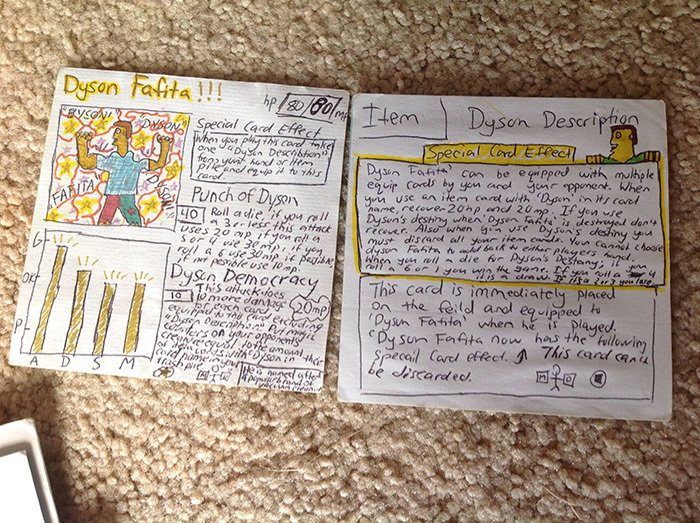 Dyson Fafita!!!
hp/80/80/mp
"DYSON!"
DYSON"
FAFITA"
G
OK
P
A D S M
Special Card Effect
When you play this card take
one "Dyson Description"
from your hand or Item
Pile and equip it to this
card.
Punch of Dyson
40 Roll a die, if you roll
a 3 or less this attack
uses 20 mp. If you roll a
5 or 4 use 30 mp. If you
roll a 6 use 30mp if possible
if not possible use 10mp.
Dyson Democracy
10 This attack does
10 more damage
20mp
for each card
equipped to
excluding
"Dyson Description". Put
counters on your opponents
creature equal to the amount
of item cards with Dyson in
card name
trash pile
He is named after
a popular brand of
Item
Dyson Description
Special Card Effect
"Dyson Fafita" can be equipped with multiple
equip cards by you and your opponent. When
you use an item card with 'Dyson' in its card
name recover 20hp and 20mp. If you use
Dyson's destiny when 'Dyson Fafita' is destroyed don't
recover. Also when you use Dyson's destiny you
must discard all your item cards. You cannot choose
dyson Fafita to add back to either players hand.
When you roll a die for Dyson's Destany, if you
roll a 6 or 1 you win the game. If you roll a 4
it is a draw. 2 or 3 you lose.
This card is immediately placed
on the feild and equipped to
'Dyson Fafita' when he is played.
"Dyson Fafita now has the following
Specail Card effect. This card can't
be discarded.